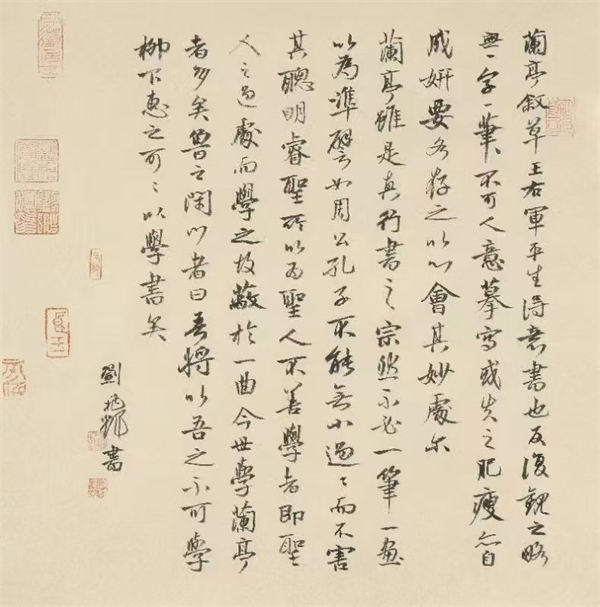 蘭亭敘草王右軍平生得意書也反復觀之略
無一字一筆不可人意摹寫或失之肥瘦亦自
成妍要各存之以心會其妙處尔
蘭亭雖是真行書之宗然不必一筆一畫
以為準譬如周公孔子不能無小過〻而不害
其聰明睿聖所以為聖人不善學者即聖
人之過處而學之故蔽於一曲今世學蘭亭
者多矣魯之者曰吾將以吾之不可學
柳下惠之可〻以學書矣
劉書